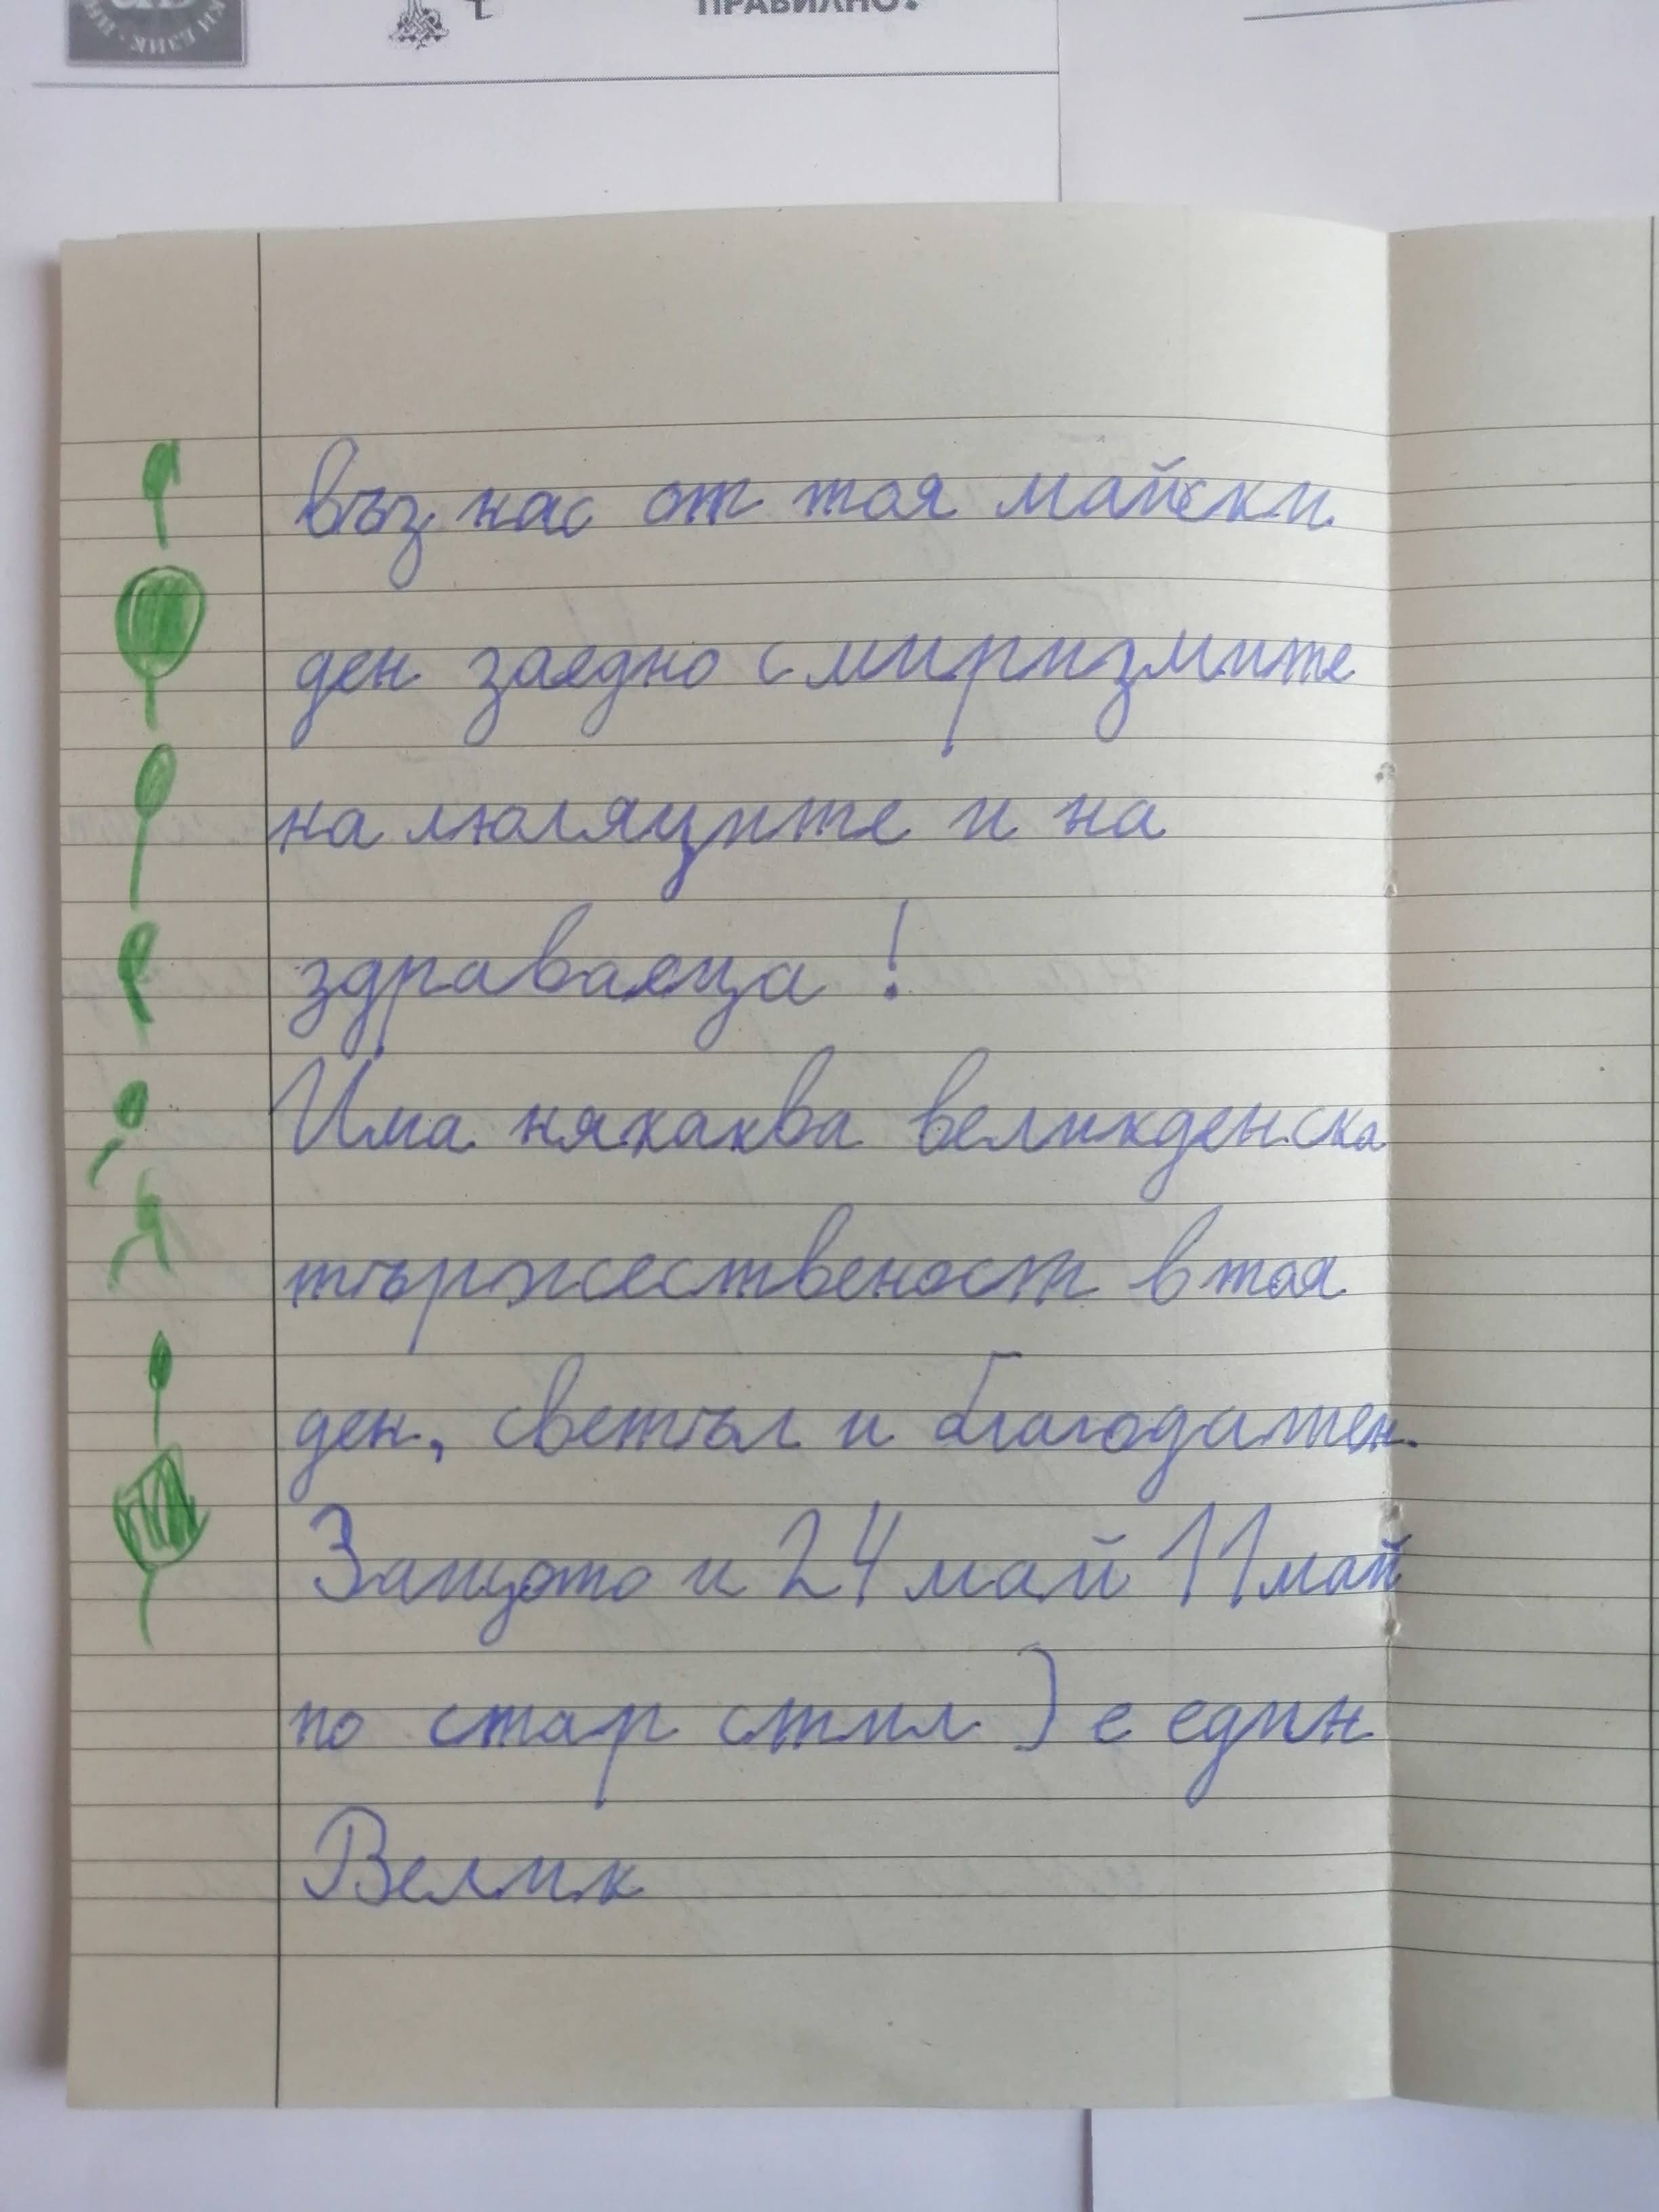 ПРАВИЛНО!
въз нас от тоя майски
ден заедно с миризмите
на люляците и на
здраваеца!
Има някаква великденска
тържественост в тоя
ден, светъл и благодатен.
Защото и 24 май 11 май
по стар стил) е един
Велик